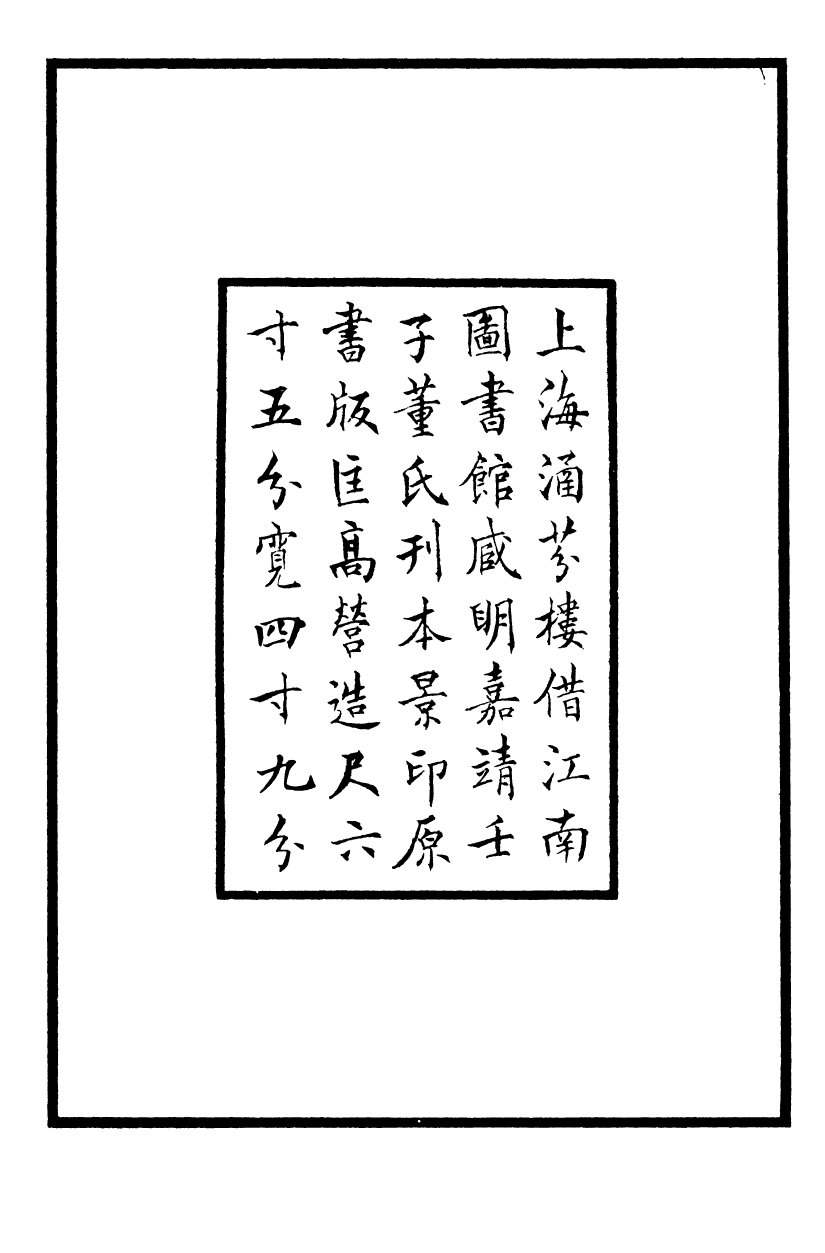 上海涵芬樓借江南
圖書館臧明嘉靖壬
子董氏刊本景印原
書版匡高營造尺六
寸五分寬四寸九分